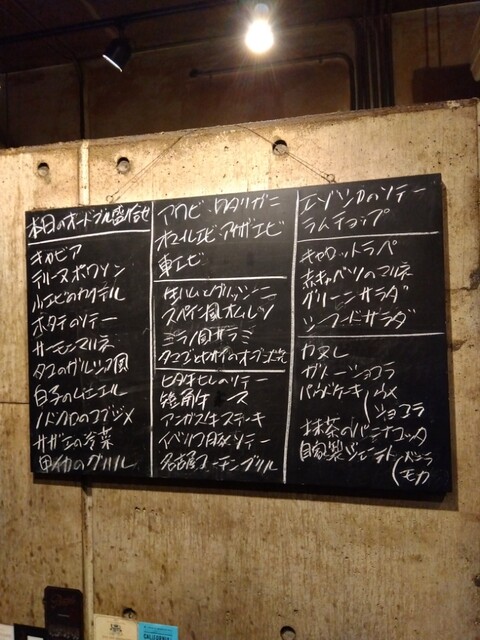 本日のオードブル盛合せ
キャビア
テリーヌポワソン
小エビのカクテル
ホタテのソテー
サーモンマリネ
タコのガルシア風
白子のムニエル
ノドグロのコブジメ
サザエの冷菜
貝のグリル
アワビ・ワタリガニ
オマールエビ・アカザエビ
車エビ
生ハムとグリッシーニ
スペイン風オムレツ
ミラノ風サラミ
ヒラメのソテー
短角牛
アンガス牛ステーキ
イベリコ豚ソテー
名古屋コーチングリル
エゾシカのソテー
ラムチョップ
キャロットラペ
赤キャベツのマリネ
グリーンサラダ
シーフードサラダ
カヌレ
ガトーショコラ
パウンドケーキ
ショコラ
抹茶のパンナコッタ
自家製ジェラート
バニラ
モカ
CALIFORNIA